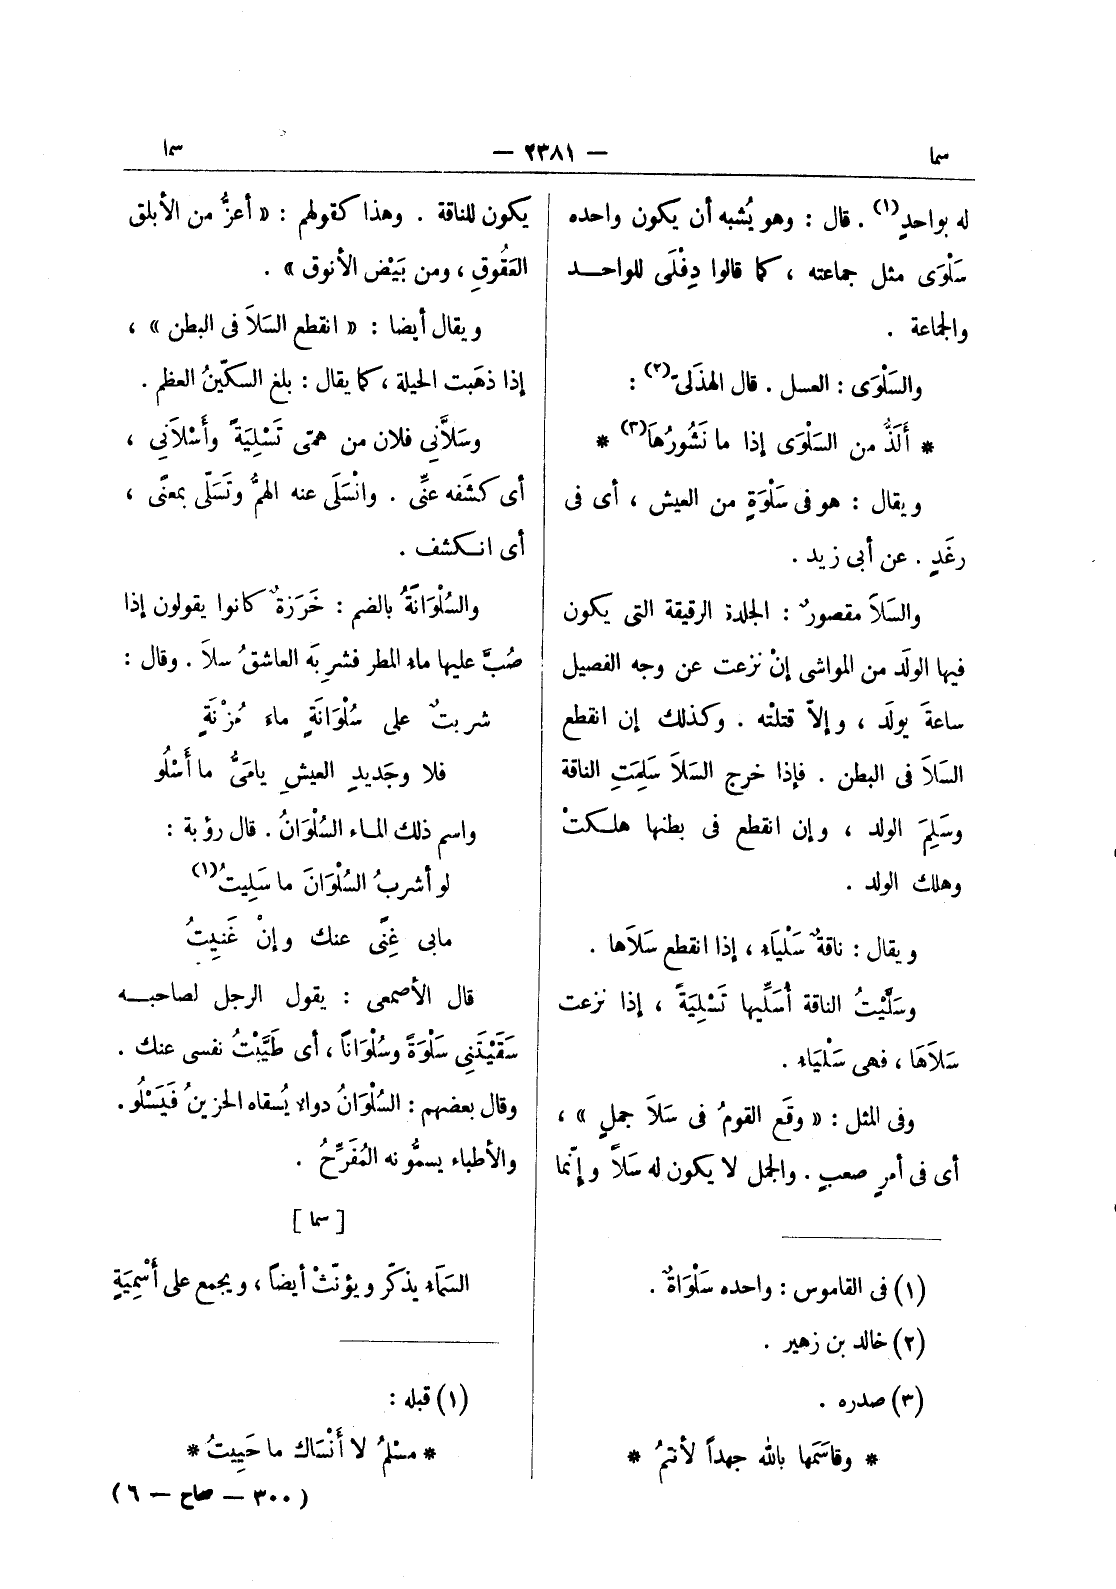 سما
— ٢٣٨١ —
سما
له بواحدٍ(١) . قال : وهو يُشبه أن يكون واحده
سَلْوَى مثل جماعته ، كما قالوا دِفْلَى للواحد
والجماعة .
والسَلْوَى : العسل . قال الهذلىّ(٢) :
* أَلَذُّ من السَلْوَى إذا ما نَشُورُهَا(٣) *
ويقال : هو فى سَلْوَةٍ من العيش ، أى فى
رغَدٍ . عن أبى زيد .
والسَلَا مقصورٌ : الجلدة الرقيقة التى يكون
فيها الولَد من المواشى إنْ نزعت عن وجه الفصيل
ساعةَ يولَد ، وإلاّ قتلتْه . وكذلك إن انقطع
السَلَا فى البطن . فإذا خرج السَلَا سَلِمَتِ الناقة
وسَلِمَ الولد ، وإن انقطع فى بطنها هلكتْ
وهلك الولد .
ويقال : ناقةٌ سَلْيَاءِ ، إذا انقطع سَلَاها .
وسَلَّيْتُ الناقة أُسَلِّيها تَسْلِيَةً ، إذا نزعت
سَلَاهَا ، فهى سَلْيَاء .
وفى المثل : « وقَع القومُ فى سَلَا جملٍ » ،
أى فى أمرٍ صعبٍ . والجمل لا يكون له سَلاً وإنّما
(١) فى القاموس : واحده سَلْوَاةٌ .
(٢) خالد بن زهير .
(٣) صدره .
* وقاسَمَها بالله جهداً لأنتمُ *
يكون للناقة . وهذا كقولهم : « أعزُّ من الأبلق
العَقُوقِ ، ومن بَيْض الأنوق » .
ويقال أيضا : « انقطع السَلَا فى البطن » ،
إذا ذهَبت الحيلة ، كما يقال : بلغ السكّينُ العظم .
وسَلاَّنِي فلان من همّى تَسْلِيَةً وأَسْلَانِى ،
أى كشَفه عنِّى . وانْسَلَى عنه الهمُّ وتَسَلّى بمعنًى ،
أى انكشف .
والسُلْوَانَةُ بالضم : خَرَزةٌ كانوا يقولون إذا
صُبَّ عليها ماء المطر فشرِبَه العاشقُ سلَا . وقال :
شربتٌ على سُلْوَانَةٍ ماءَ مُزْنَةٍ
فلا وجَديدِ العيشِ يامَىُّ ما أَسْلُو
واسم ذلك الماء السُلْوَانُ . قال رؤبة :
لو أشربُ السُلْوَانَ ما سَلِيتُ(١)
مابى غِنًى عنك وإنْ غَنِيتُ
قال الأصمعى : يقول الرجل لصاحبه
سَقَيْتَنِى سَلْوَةً وسُلْوَاناً ، أى طَيَّبْتُ نفسى عنك .
وقال بعضهم : السُلْوَانُ دواء يُسقاه الحزينُ فَيَسْلُو .
والأطباء يسمُّونه المُفَرِّحُ .
[ سما ]
السَمَاءِ يذكّر ويؤنّثْ أيضاً ، ويجمع على أَسْمِيَةٍ
(١) قبله :
* مسْلمُ لا أَنْسَاك ما حَيِيتُ *
( ٣٠٠ — صحاح — ٦ )